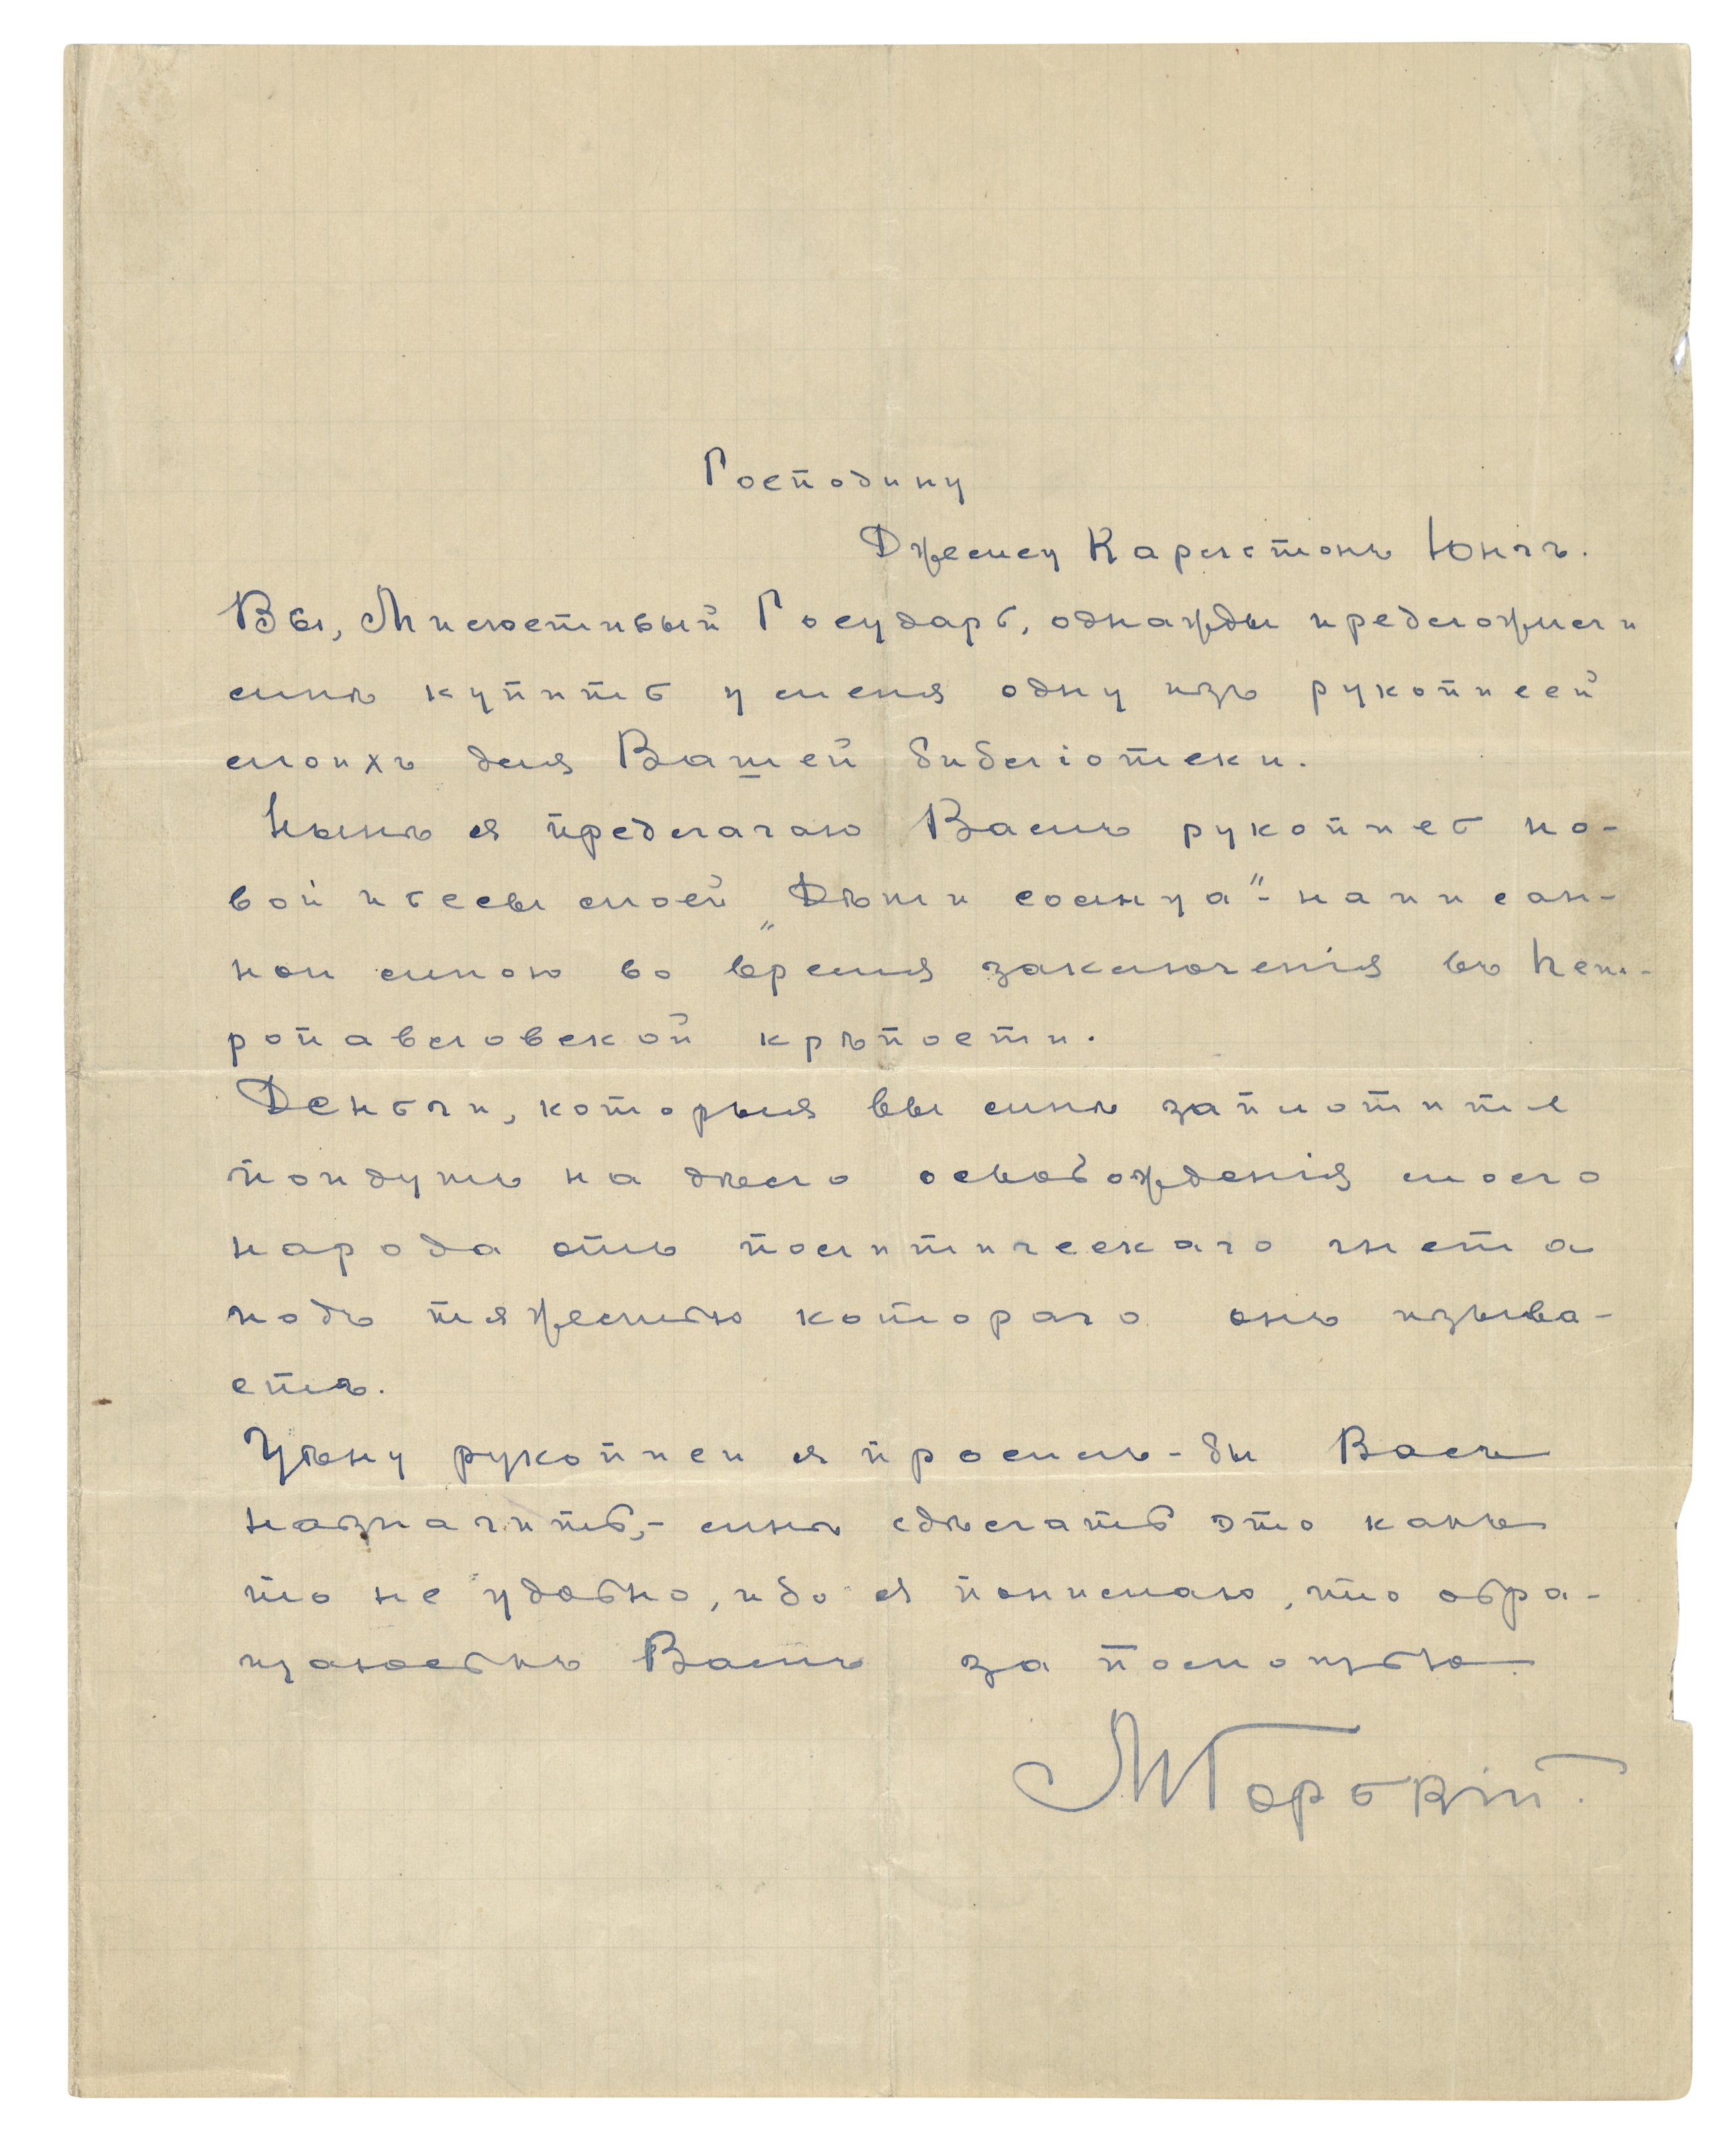 Господину
Джемсу Карлстонъ Юнгъ.
Вы, Милостивый Государь, однажды предложили
мнѣ купить у меня одну изъ рукописей
моихъ для Вашей библіотеки.
Нынѣ я предлагаю Вамъ рукопись но-
вой пьесы моей „Дѣти солнца“ - написан-
ной мною во время заключенія въ Пет-
ропавловской крѣпости.
Деньги, которыя вы мнѣ заплотите
пойдутъ на дѣло освобожденія моего
народа отъ политическаго гнета
подъ тяжестью котораго онъ изныва-
етъ.
Цѣну рукописи я просилъ-бы Васъ
назначить,- мнѣ сдѣлать это какъ
то не удобно, ибо я понимаю, что обра-
щаюсь къ Вамъ за помощью.
МГорькій.